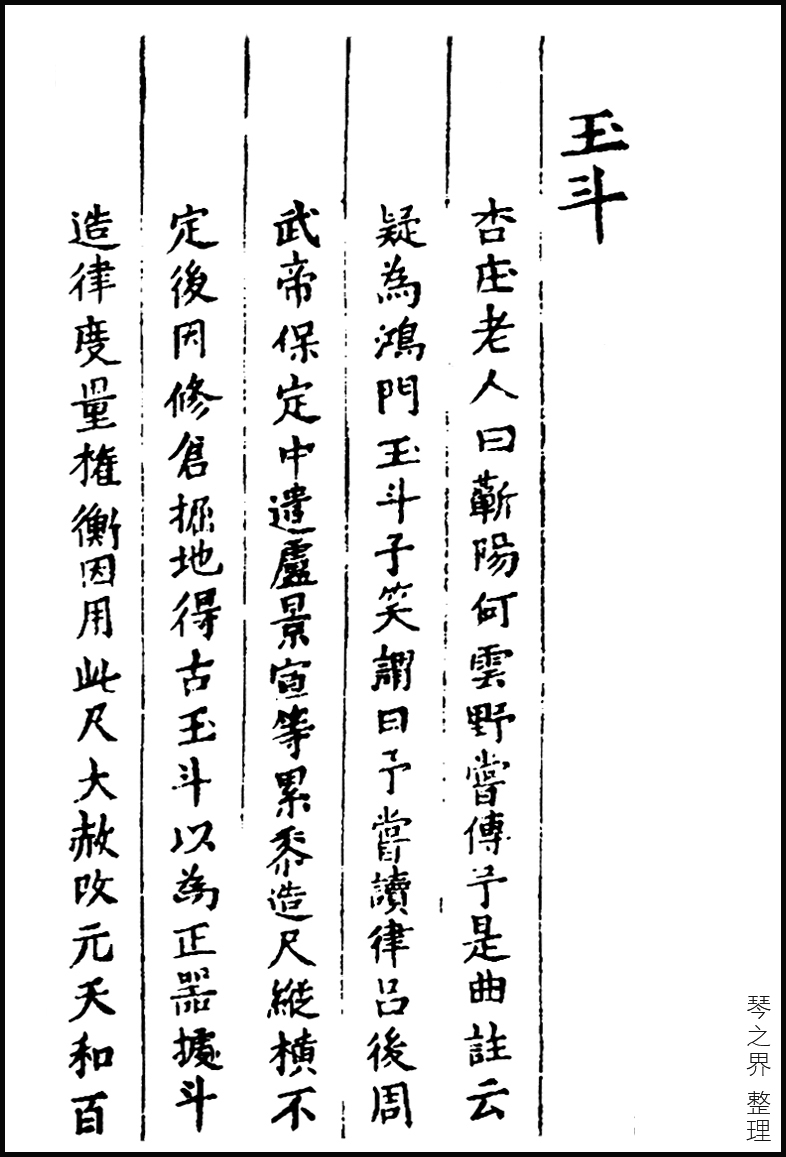 玉斗
杏庄老人曰蘄陽何雲野嘗傳予是曲註云
疑為鴻門玉斗子笑謂曰予嘗讀律呂後周
武帝保定中遣盧景宣等累黍造尺縱橫不
定後因修倉掘地得古玉斗以為正器據斗
造律度量權衡因用此尺大赦改元天和百
琴之界 整理